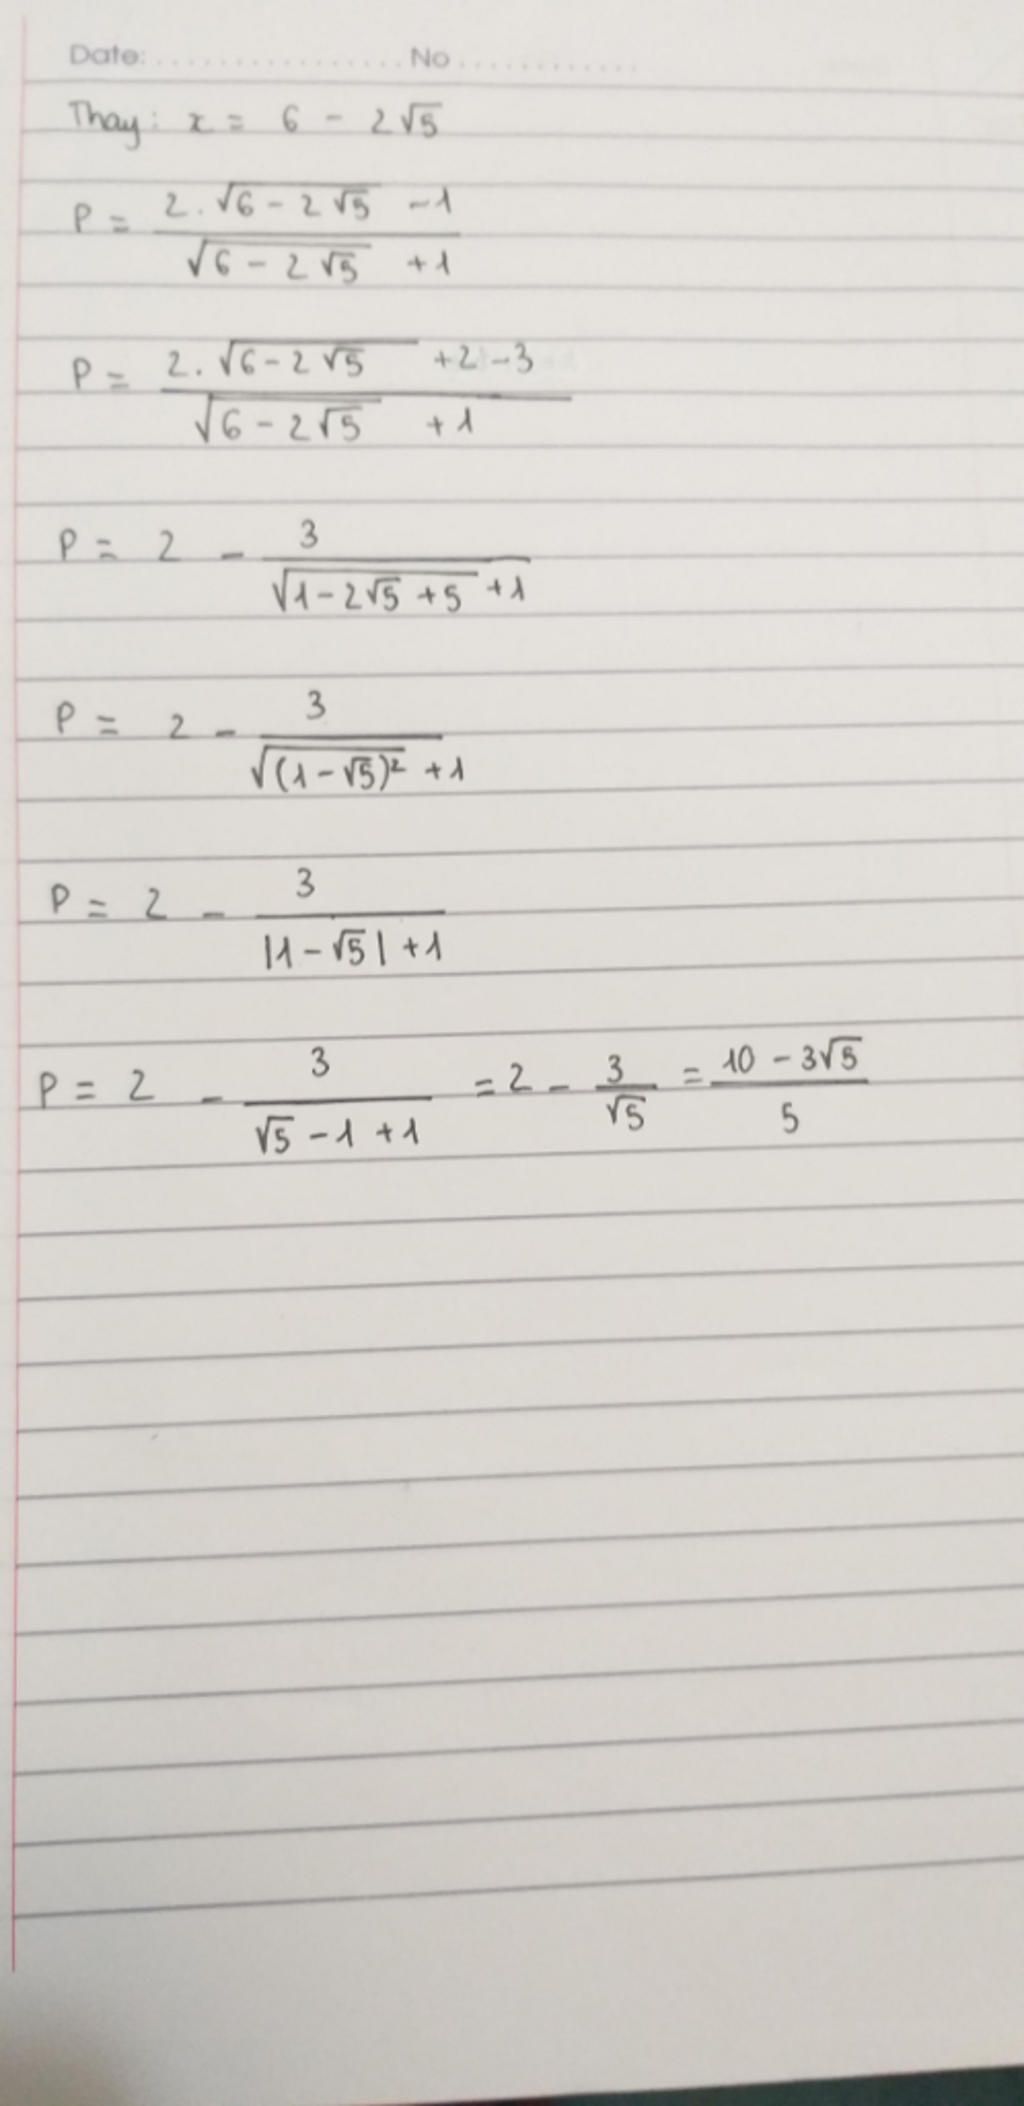 Date: ................ No ............
Thay: x = 6 - 2√5
P = (2.√(6 - 2√5) - 1) / (√(6 - 2√5) + 1)
P = (2.√(6 - 2√5) + 2 - 3) / (√(6 - 2√5) + 1)
P = 2 - 3 / (√(1 - 2√5 + 5) + 1)
P = 2 - 3 / (√((1 - √5)²) + 1)
P = 2 - 3 / (|1 - √5| + 1)
P = 2 - 3 / (√5 - 1 + 1) = 2 - 3/√5 = (10 - 3√5) / 5